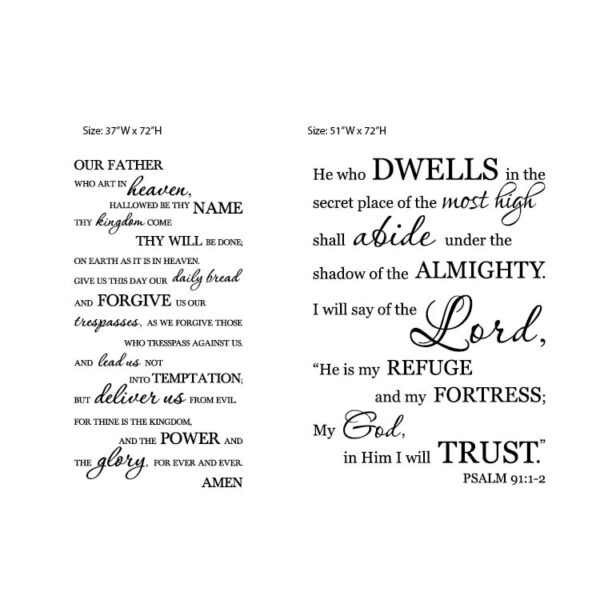 Size: 37"W x 72"H
OUR FATHER
WHO ART IN heaven,
HALLOWED BE THY NAME
THY kingdom COME
THY WILL BE DONE;
ON EARTH AS IT IS IN HEAVEN.
GIVE US THIS DAY OUR daily bread
AND FORGIVE US OUR
trespasses, AS WE FORGIVE THOSE
WHO TRESSPASS AGAINST US.
AND lead us NOT
INTO TEMPTATION;
BUT deliver us FROM EVIL.
FOR THINE IS THE KINGDOM,
AND THE POWER AND
THE glory, FOR EVER AND EVER.
AMEN
Size: 51"W x 72"H
He who DWELLS in the
secret place of the most high
shall abide under the
shadow of the ALMIGHTY.
I will say of the Lord,
“He is my REFUGE
and my FORTRESS;
My God,
in Him I will TRUST.”
PSALM 91:1-2